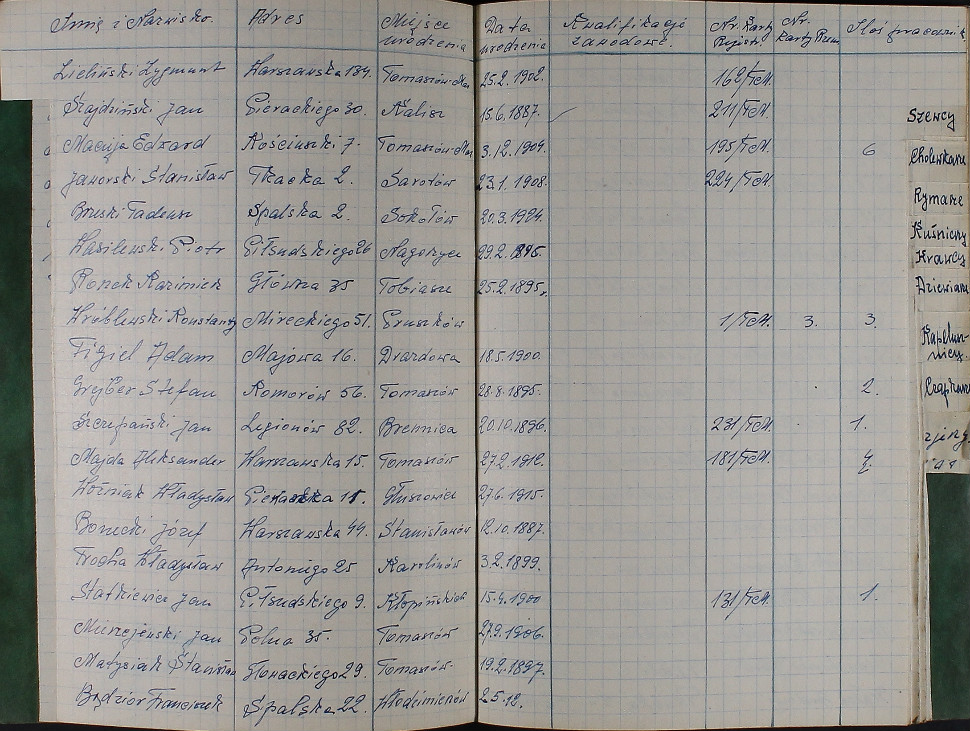 Imię i Nazwisko. Adres Miejsce urodzenia Data urodzenia Kwalifikacje zawodowe. Nr. Karty Rejestr. Nr. Karty Rzem. Ilość pracownik.
Zieliński Zygmunt Warszawska 134. Tomaszów-Maz 25.2.1902. 162/TcM.
Szajdziński Jan Pierackiego 30. Kalisz 15.6.1887. 211/TcM.
Macuja Edward Kościuszki 7. Tomaszów-Maz 3.12.1904. 195/TcM. 6
Jaworski Stanisław Tkacka 2. Saratów 23.1.1908. 224/TcM.
Bruski Tadeusz Spalska 2. Sokołów 20.3.1924.
Wasilewski Piotr Piłsudskiego 26 Nagorzyce 29.2.1895.
Ronek Kazimierz Główna 35 Tobiasze 25.2.1895.
Wróblewski Konstanty Mireckiego 51. Pruszków 1/TcM. 3. 3.
Figiel Adam Majowa 16. Drazdowa 18.5.1900.
Grejber Stefan Komorów 56. Tomaszów 28.8.1895. 2.
Szczepański Jan Legionów 82. Bremnica 20.10.1896. 231/TcM. 1.
Majda Aleksander Warszawska 15. Tomaszów 27.2.1912. 181/TcM. 4
Woźniak Władysław 27.6.1915.
Bonecki Józef Warszawska 44. Stanisławów 12.10.1887.
Trocha Władysław Antoniego 25 Karolinów 3.2.1899.
Statkiewicz Jan Piłsudskiego 9. 15.4.1900 131/TcM. 1.
Jan Polna 35. Tomaszów 27.9.1906.
Matysiak Stanisław Słowackiego 29. Tomaszów. 19.2.1897.
Będzior Franciszek Spalska 22. Włodzimierzów 25.12.
Szewcy
Cholewkarze
Rymarze
Kuśnierzy
Krawcy
Dziewiarze
Kapelusznicy.
Czapkarze